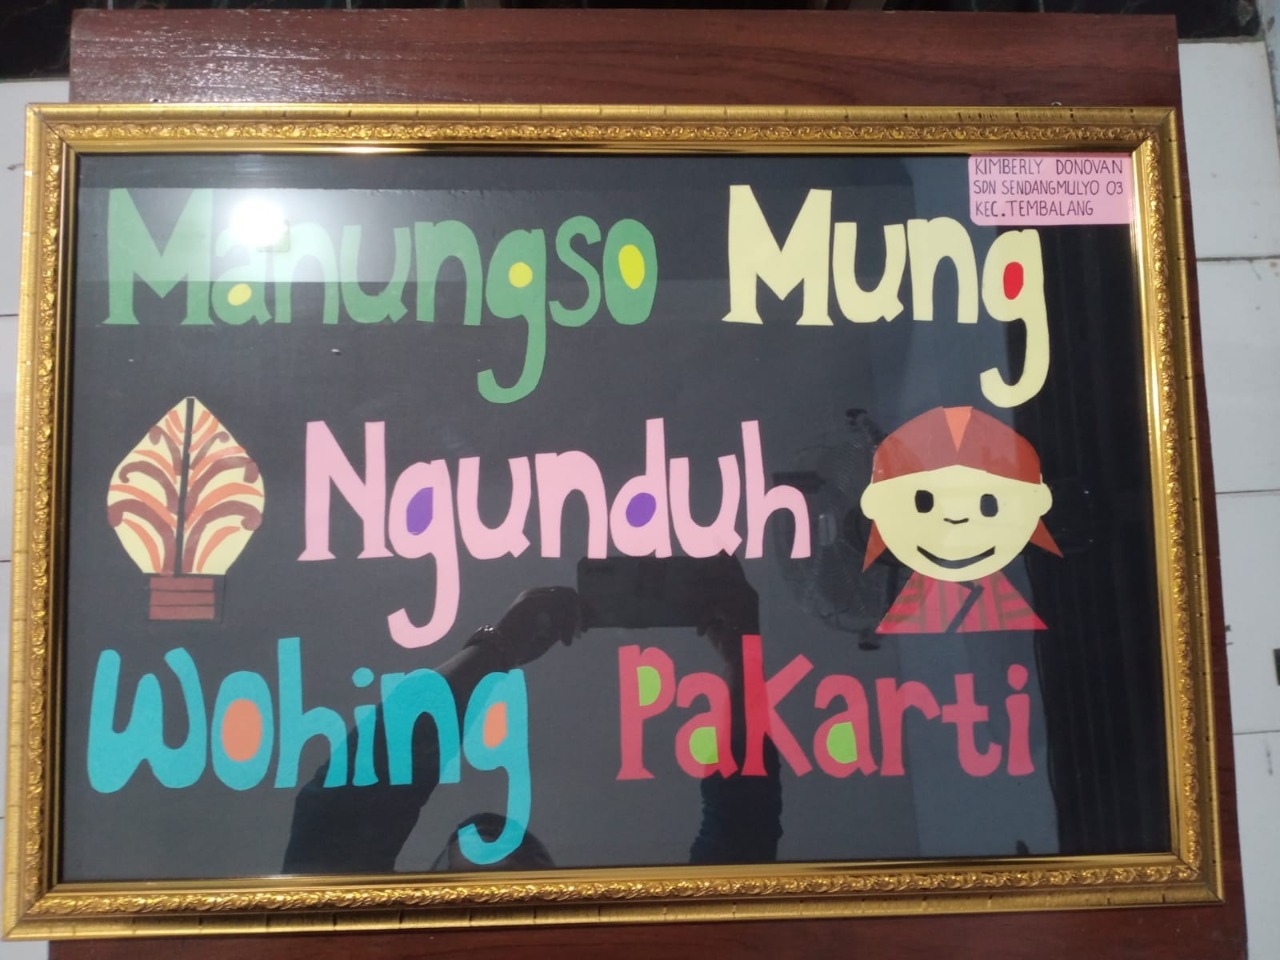 KIMBERLY DONOVAN
SDN SENDANGMULYO 03
KEC. TEMBALANG
Manungso Mung
Ngunduh
Wohing Pakarti